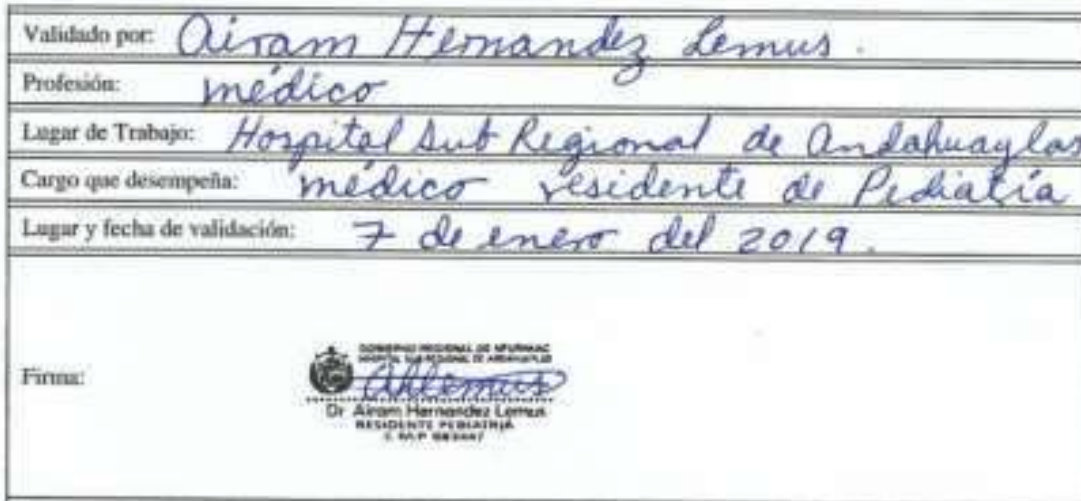 Validado por: Airam Hernandez Lemus.
Profesión: médico
Lugar de Trabajo: Hospital Sub Regional de Andahuaylas
Cargo que desempeña: médico residente de Pediatría
Lugar y fecha de validación: 7 de enero del 2019.
GOBIERNO REGIONAL DE APURIMAC
HOSPITAL SUB REGIONAL DE ANDAHUAYLAS
Firma: AHLemus
Dr Airam Hernandez Lemus
RESIDENTE PEDIATRIA
C.M.P